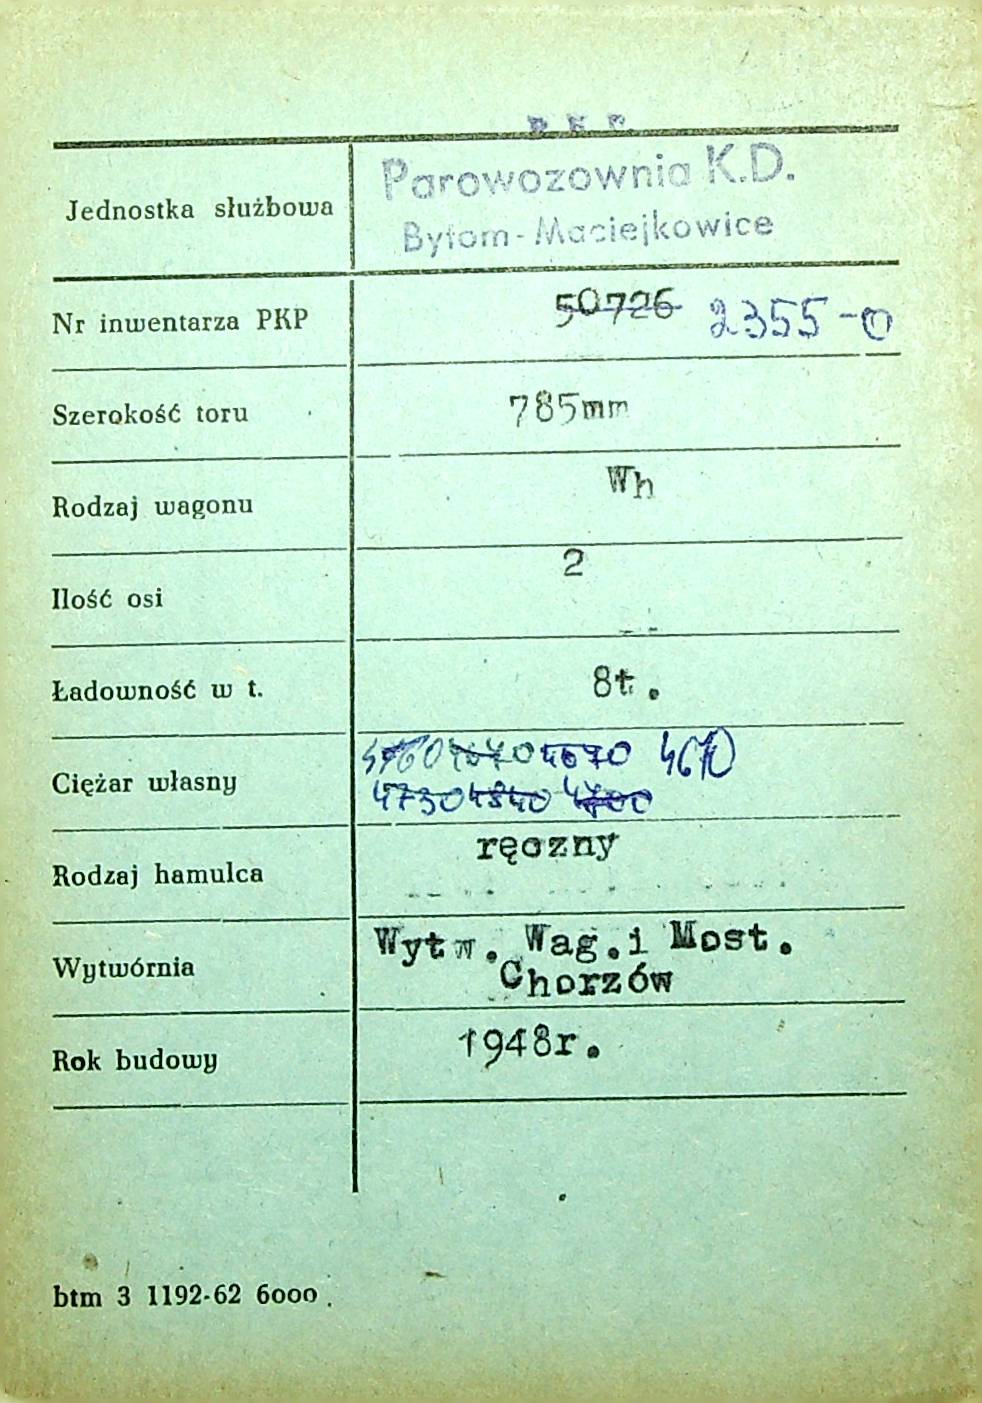 P.K.P.
Jednostka służbowa Parowozownia K.D.
Bytom-Maciejkowice
Nr inwentarza PKP 50726 2355-0
Szerokość toru 785mm
Rodzaj wagonu Wh
Ilość osi 2
Ładowność w t. 8t.
Ciężar własny 4670 4670
4730 4840 4700
Rodzaj hamulca ręczny
Wytwórnia Wytw. Wag.i Most.
Chorzów
Rok budowy 1948r.
btm 3 1192-62 6000